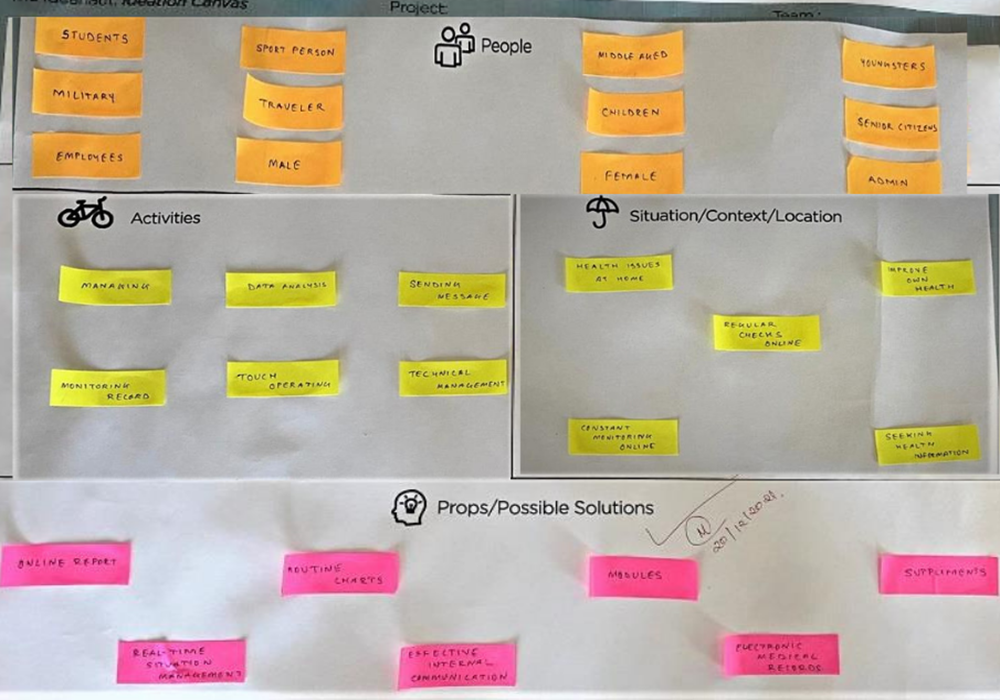 Ideation Canvas
Project:
Team:
People
STUDENTS
SPORT PERSON
MIDDLE AGED
YOUNGSTERS
MILITARY
TRAVELER
CHILDREN
SENIOR CITIZENS
EMPLOYEES
MALE
FEMALE
ADMIN
Activities
MANAGING
DATA ANALYSIS
SENDING
MESSAGE
MONITORING
RECORD
TOUCH
OPERATING
TECHNICAL
MANAGEMENT
Situation/Context/Location
HEALTH ISSUES
AT HOME
IMPROVE
OWN
HEALTH
REGULAR
CHECKS
ONLINE
CONSTANT
MONITORING
ONLINE
SEEKING
HEALTH
INFORMATION
Props/Possible Solutions
20/12/2021.
ONLINE REPORT
ROUTINE
CHARTS
MODULES
SUPPLIMENTS
REAL-TIME
SITUATION
MANAGEMENT
EFFECTIVE
INTERNAL
COMMUNICATION
ELECTRONIC
MEDICAL
RECORDS